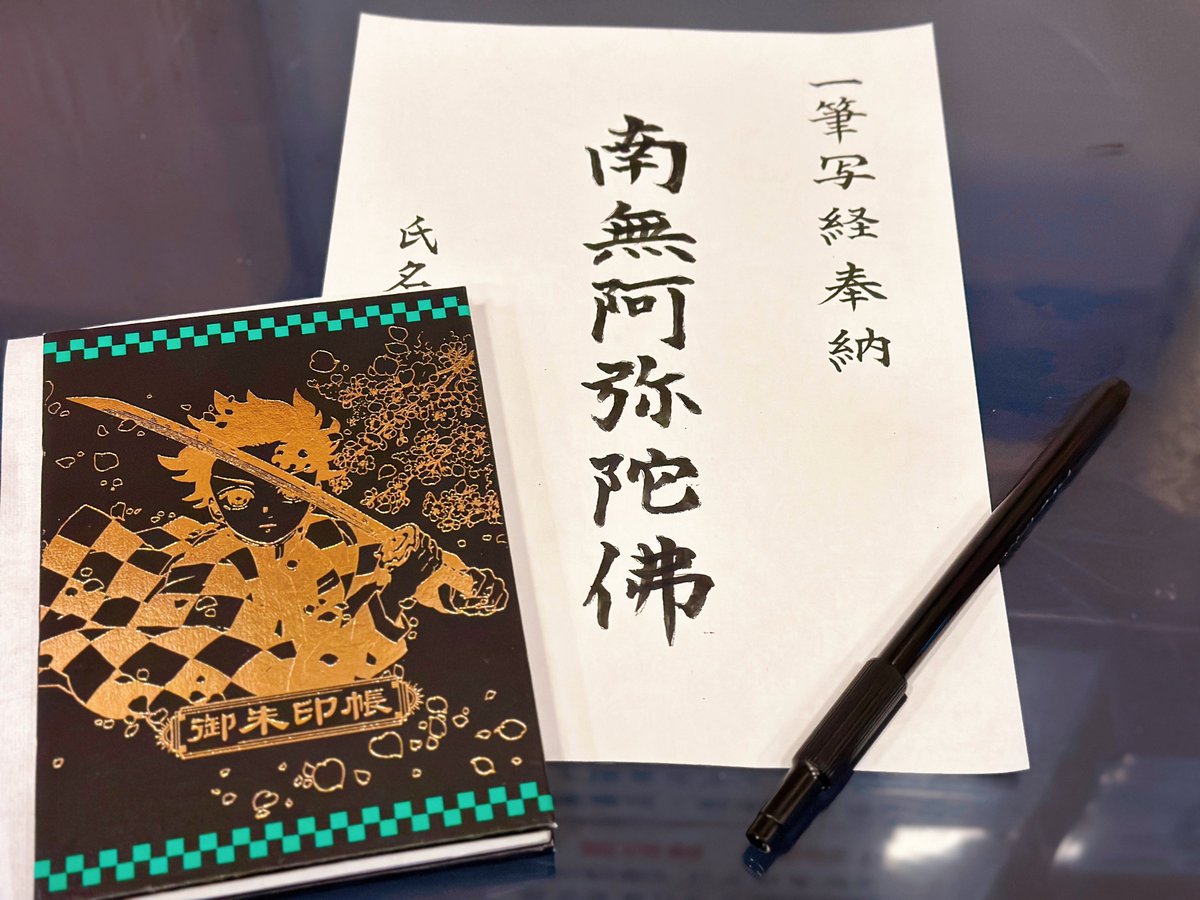 一筆写経奉納
南無阿弥陀佛
氏名
御朱印帳